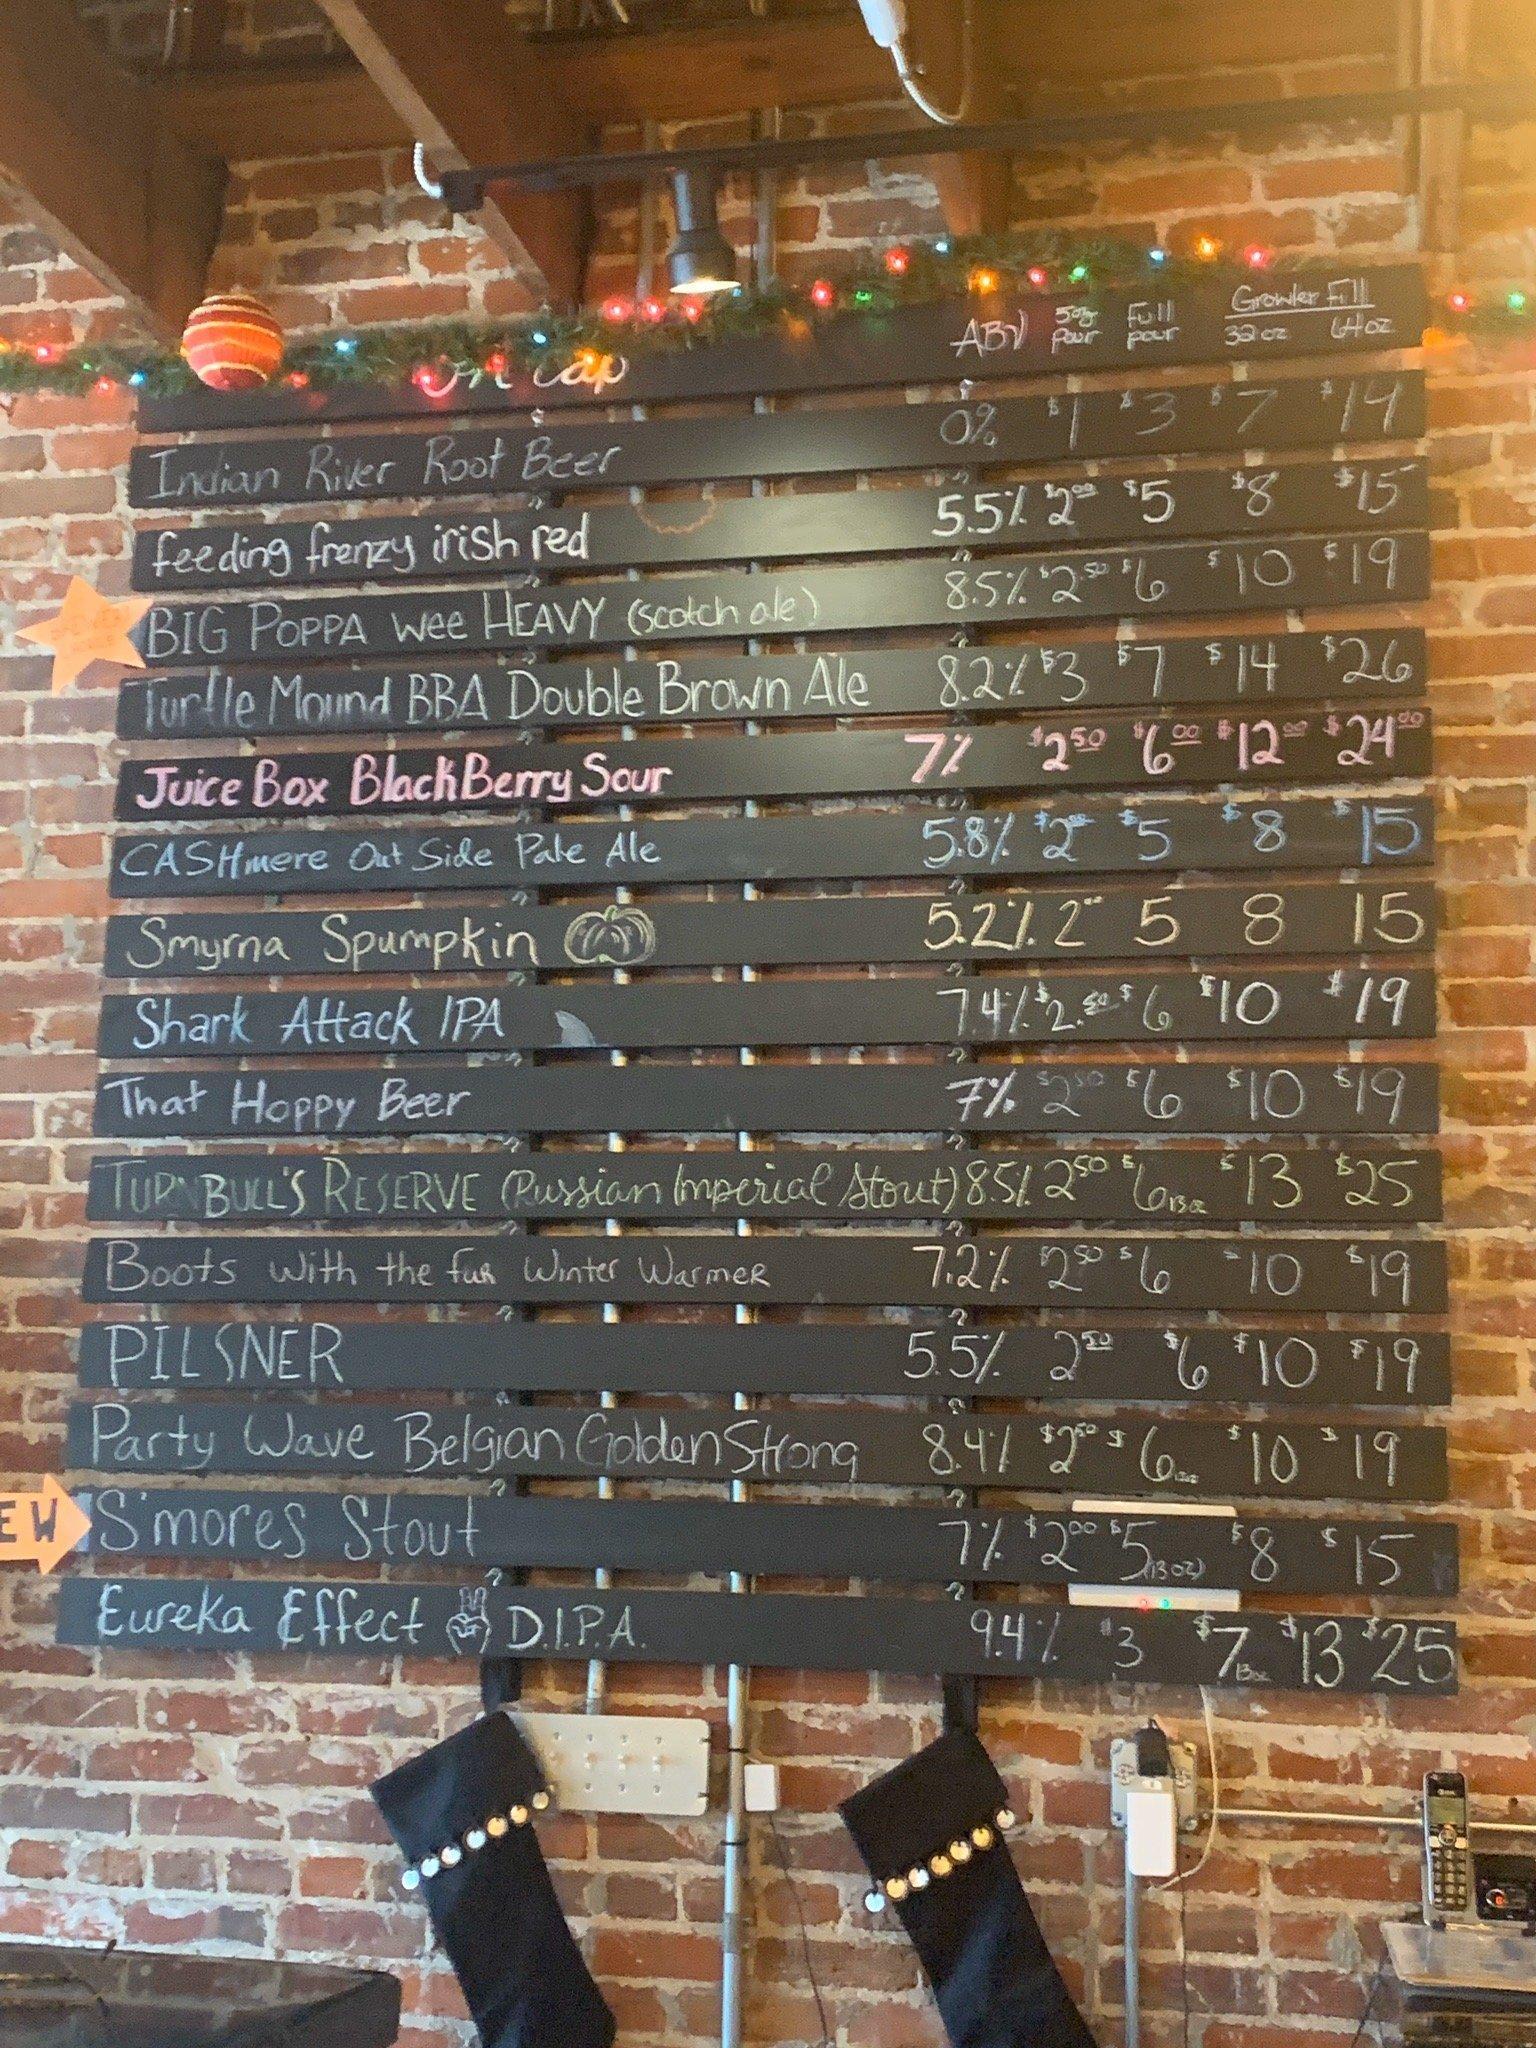 On Tap ABV 5oz pour Full pour Growler Fill 32oz 64oz
Indian River Root Beer 0% $1 $3 $7 $14
feeding frenzy irish red 5.5% $2.00 $5 $8 $15
BIG POPPA wee HEAVY (scotch ale) 8.5% $2.50 $6 $10 $19
Turtle Mound BBA Double Brown Ale 8.2% $3 $7 $14 $26
Juice Box BlackBerry Sour 7% $2.50 $6.00 $12.00 $24.00
CASHmere Out Side Pale Ale 5.8% $2.00 $5 $8 $15
Smyrna Spumpkin 5.2% 2.00 5 8 15
Shark Attack IPA 7.4% $2.50 $6 $10 $19
That Hoppy Beer 7% $2.50 $6 $10 $19
TURNBULL'S RESERVE (Russian Imperial Stout) 8.5% 2.50 $6 13oz $13 $25
Boots with the fur Winter Warmer 7.2% $2.50 $6 $10 $19
PILSNER 5.5% 2.50 $6 $10 $19
Party Wave Belgian Golden Strong 8.4% $2.50 $6 13oz $10 $19
EW S'mores Stout 7% $2.00 $5 (13oz) $8 $15
Eureka Effect D.I.P.A. 9.4% $3 $7 13oz $13 $25